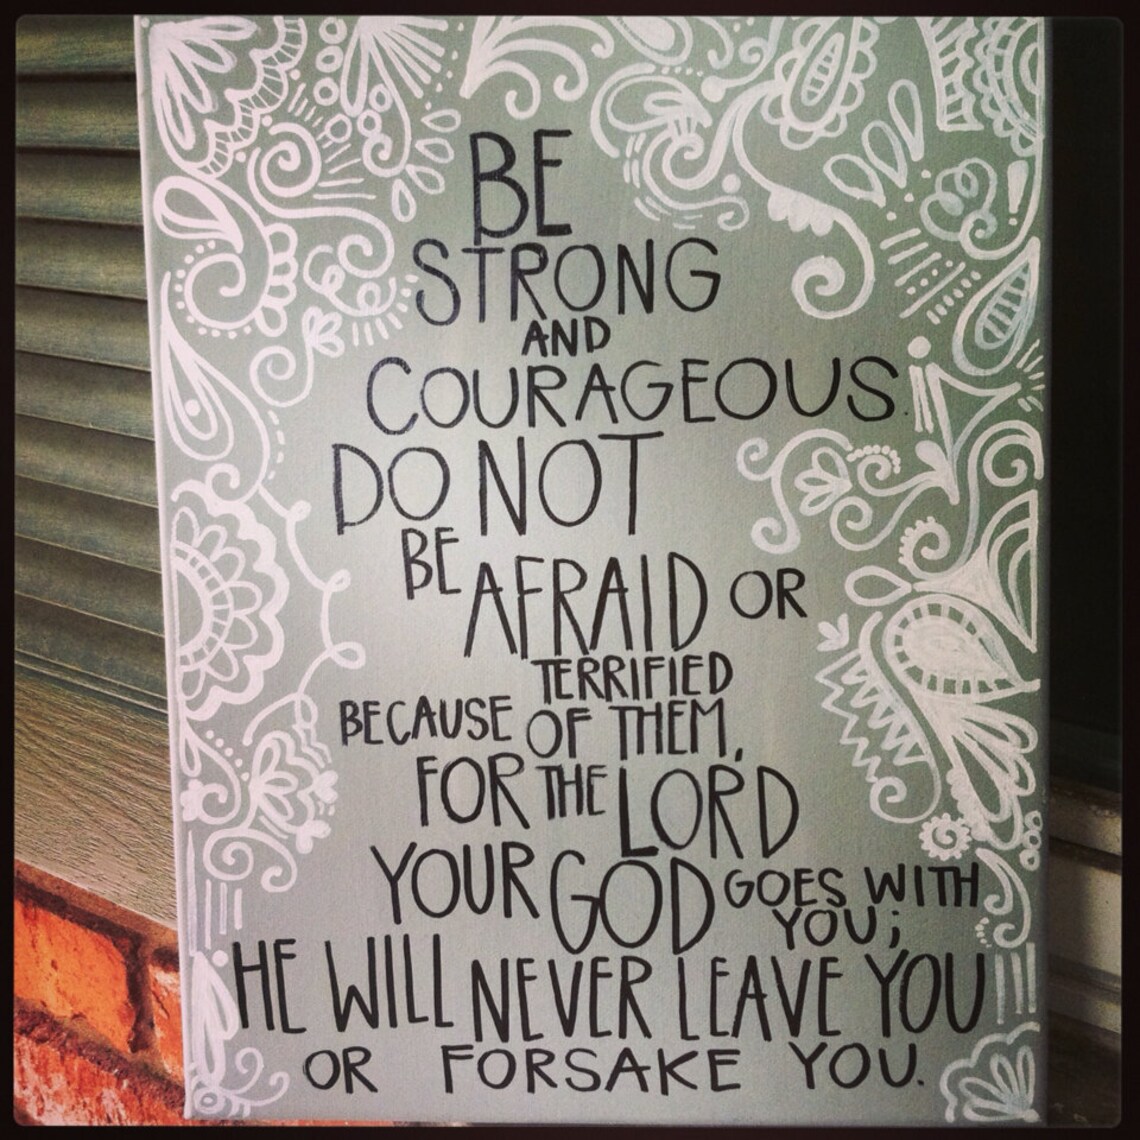 BE
STRONG
AND
COURAGEOUS.
DO NOT
BE AFRAID OR
TERRIFIED
BECAUSE OF THEM,
FOR THE LORD
YOUR GOD GOES WITH
YOU;
HE WILL NEVER LEAVE YOU
OR FORSAKE YOU.